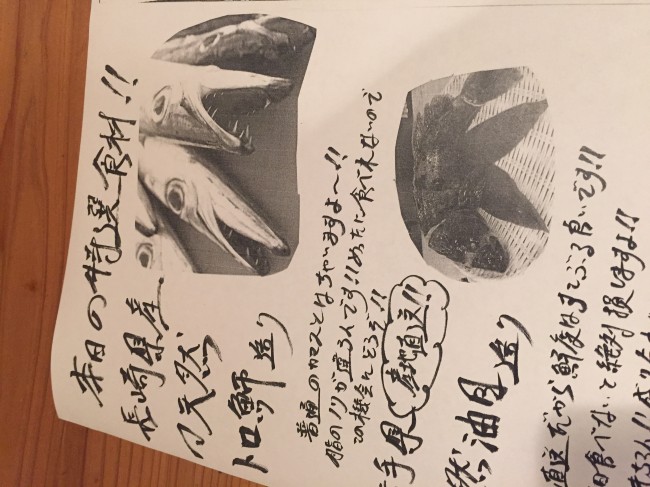 本日の特選食材!!
長崎県産
天然
トロ魳 造り
普通のカマスとはちがいますよ～!!
脂のノリが違うんです!!めったに食べれないので
この機会にどうぞ!!
手県 産地直送!!
然油目造り
直送だから鮮度はすこぶる良いです!!
食べないと絶対損しますよ!!